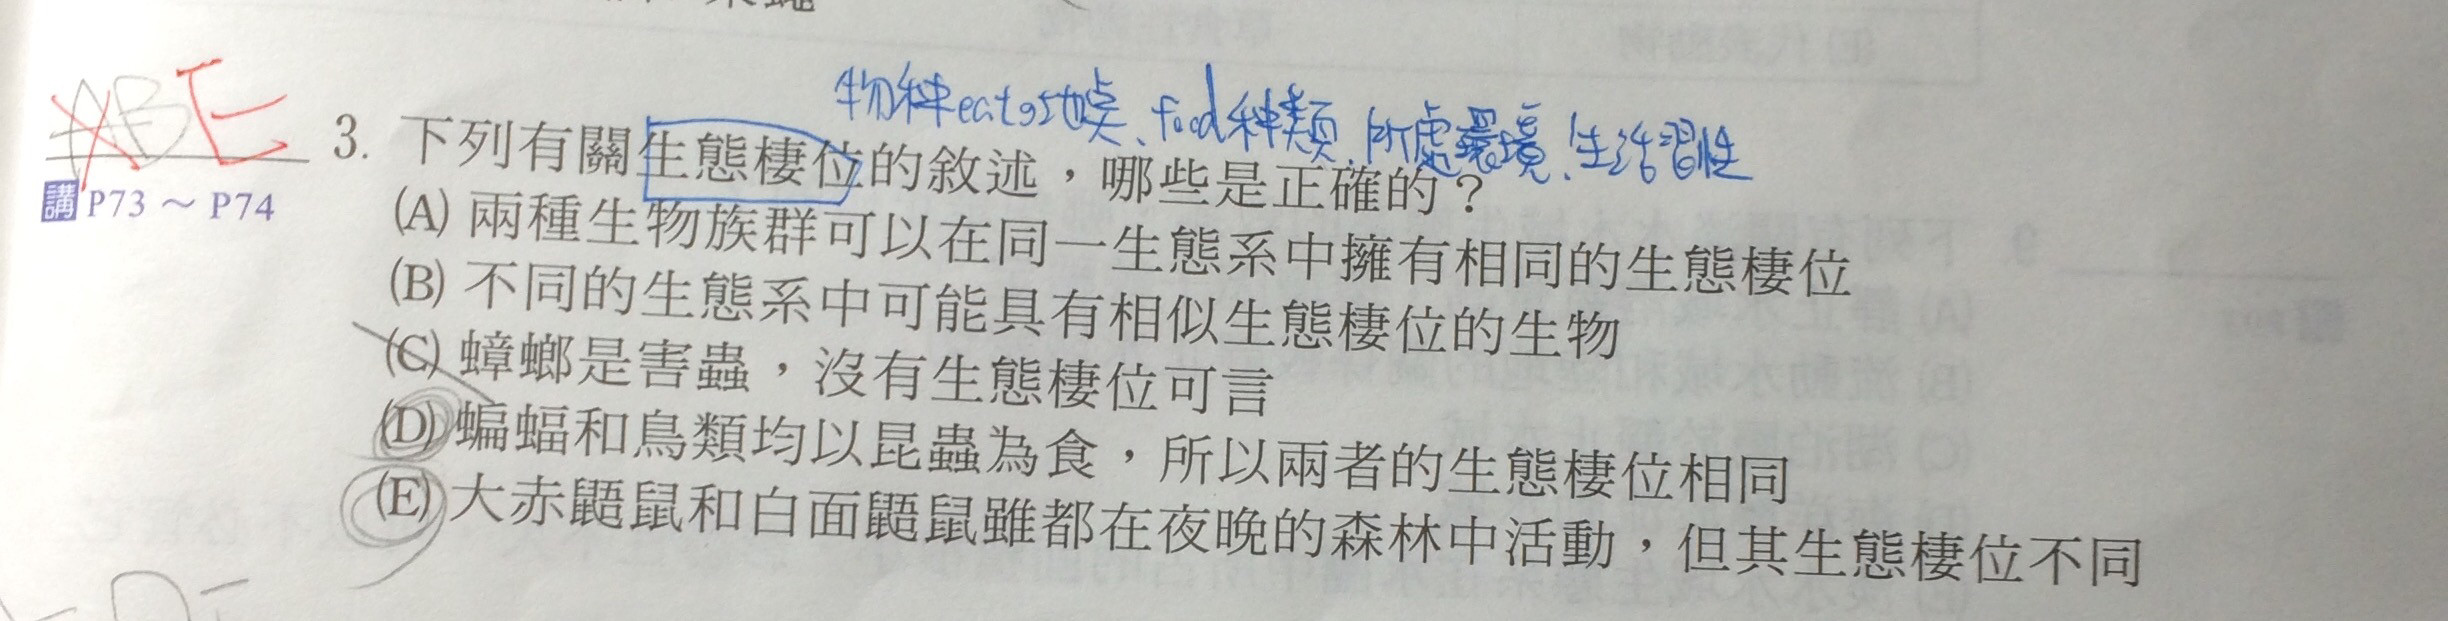 物种eat gst地點、food种類、所處環境、生活習性
ABE
3. 下列有關生態棲位的敘述，哪些是正確的？
講 P73 ～ P74
(A) 兩種生物族群可以在同一生態系中擁有相同的生態棲位
(B) 不同的生態系中可能具有相似生態棲位的生物
(C) 蟑螂是害蟲，沒有生態棲位可言
(D) 蝙蝠和鳥類均以昆蟲為食，所以兩者的生態棲位相同
(E) 大赤鼯鼠和白面鼯鼠雖都在夜晚的森林中活動，但其生態棲位不同